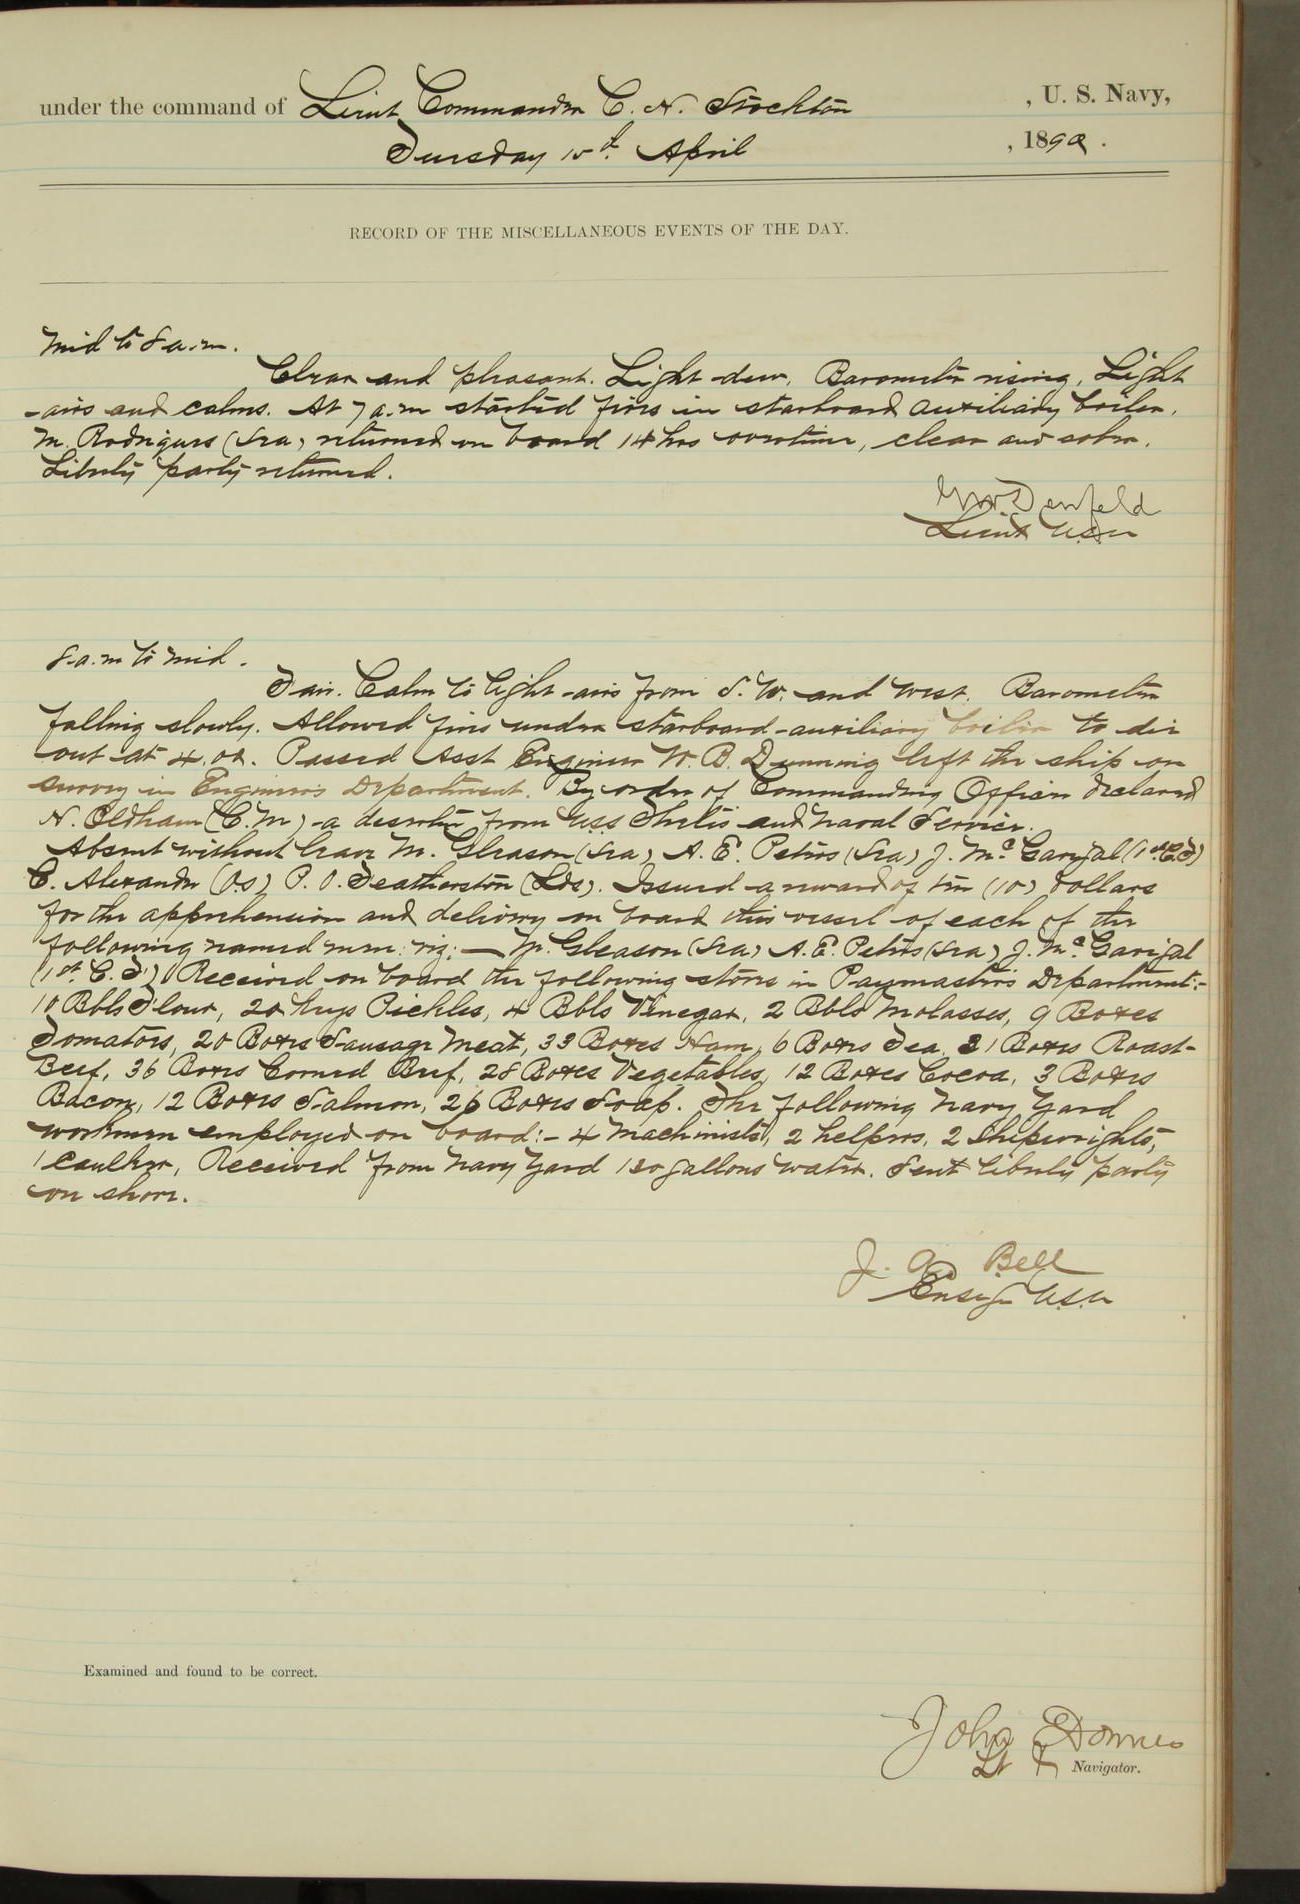 under the command of Lieut Commander C. H. Stockton , U. S. Navy,
Tuesday April , 1892.
RECORD OF THE MISCELLANEOUS EVENTS OF THE DAY.
Mid to 8 a.m.
Clear and pleasant. Light dew. Barometer rising. Light
airs and calms. At 7 a.m started fires in starboard auxiliary boiler.
M. Rodrigues (Sea) returned on board 14 hrs overtime, clean and sober.
Liberty party returned.
Denfeld
Lieut USN
8 a.m to mid.
Fair. Calm to light airs from S. W. and west. Barometer
falling slowly. Allowed fires under starboard auxiliary boiler to die
out at 4.02. Passed Asst Engineer W. B. Dunning left the ship on
survey in Engineer's Department. By order of Commanding Officer declared
N. Oldham (C.M) a deserter from USS Thetis and Naval Service.
Absent without leave M. Gleason (Sea) A. E. Peters (Sea) J. Mc Garigal (1st C.F)
C. Alexander (O.S) P. O. Featherston (Lds). Issued a reward of ten (10) dollars
for the apprehension and delivery on board this vessel of each of the
following named men: viz:— M. Gleason (Sea) A. E. Peters (Sea) J. Mc Garigal
(1st C. F.) Received on board the following stores in Paymaster's Department:-
10 Bbls Flour, 20 kegs Pickles, 4 Bbls Vinegar, 2 Bbls Molasses, 9 Boxes
Tomatoes, 20 Boxes Sausage Meat, 33 Boxes Ham, 6 Boxes Tea, 31 Boxes Roast-
Beef, 36 Boxes Corned Beef, 28 Boxes Vegetables, 12 Boxes Cocoa, 3 Boxes
Bacon, 12 Boxes Salmon, 26 Boxes Soap. The following Navy Yard
workmen employed on board:- 4 Machinists, 2 helpers, 2 Shipwrights,
1 caulker, Received from Navy Yard gallons water. Sent liberty party
on shore.
J. A. Bell
Ensign U.S.N
Examined and found to be correct.
John Downes
Lt & Navigator.